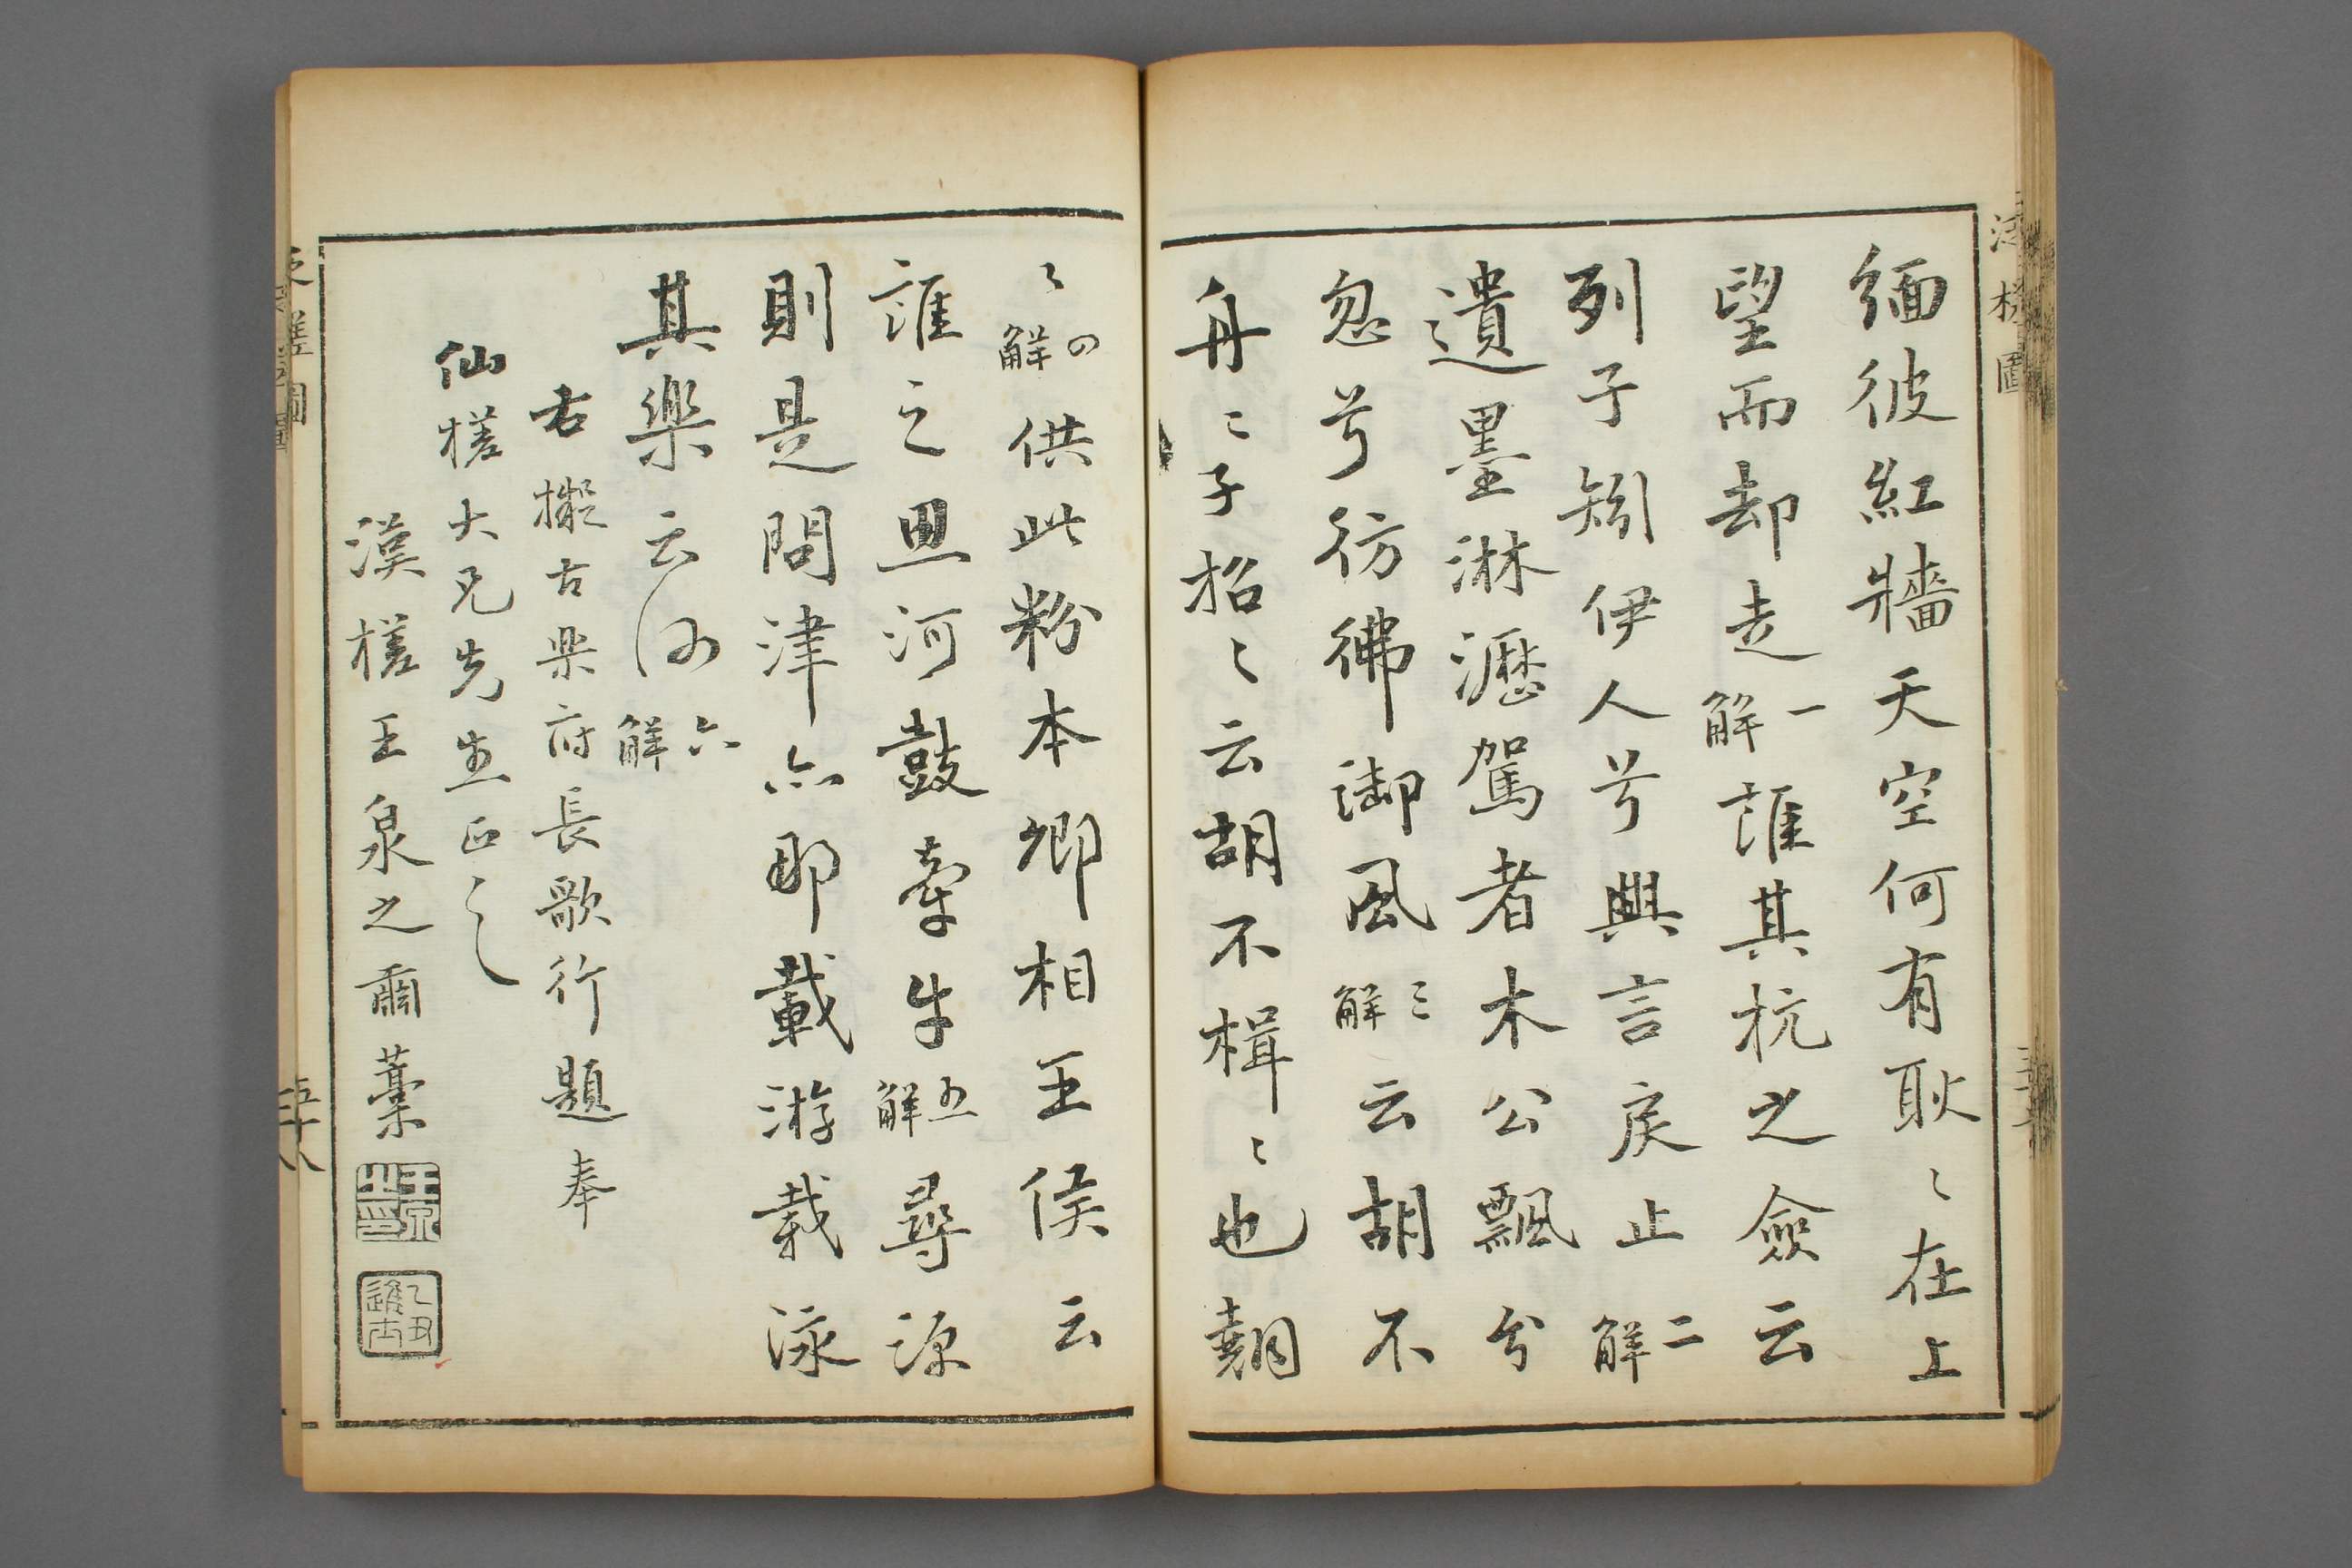 緬彼紅牆天空何有耿〻在上
望而却走一解誰其杭之僉云
列子矧伊人兮興言戾止二解
遺〻墨淋漓駕者木公飄兮
忽兮彷彿御風三解云胡不
舟〻子招〻云胡不楫〻也翺
〻四解供此粉本鄉相王侯云
誰之思河鼓牽牛五解尋源
則是問津亦耶載游載泳
其樂云何六解
右擬古樂府長歌行題奉
仙槎大兄先生正之
漢槎王泉之爾藁
王泉之印
乙丑進士
泛槎圖
五十八